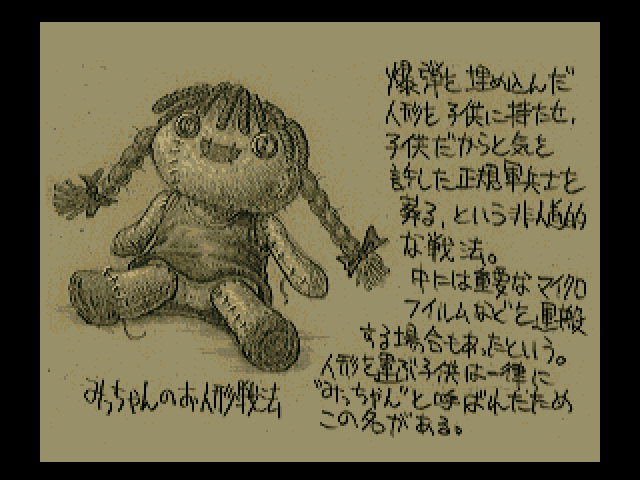 爆弾を埋め込んだ
人形を子供に持たせ、
子供だからと気を
許した正規軍兵士を
葬る、という非人道的
な戦法。
中には重要なマイクロ
フイルムなどを運搬
する場合もあったという。
人形を運ぶ子供は一律に
"みっちゃん"と呼ばれたため
この名がある。
みっちゃんのお人形戦法